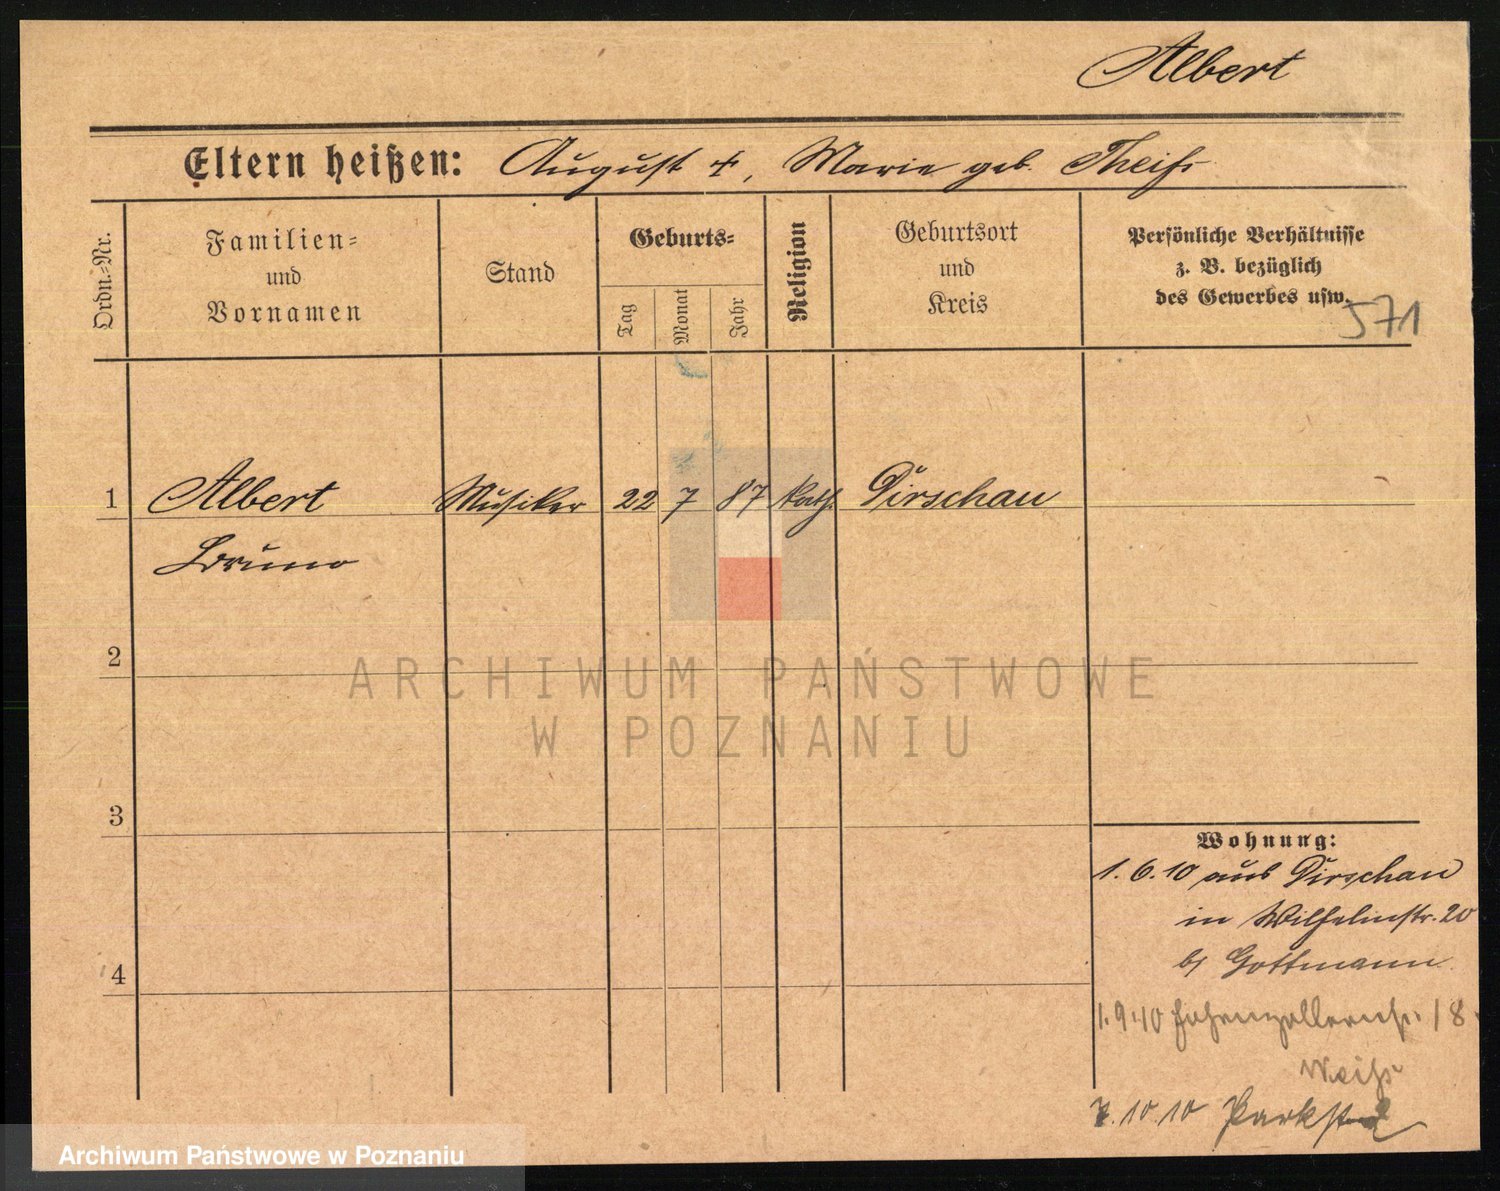 Albert
Eltern heißen: August †, Marie geb. Theiß
Ordn.-Nr.
Familien-
und
Vornamen
Stand
Geburts-
Tag
Monat
Jahr
Religion
Geburtsort
und
Kreis
Persönliche Verhältnisse
z. B. bezüglich
des Gewerbes usw.
571
1 Albert Musiker 22 7 87 kath. Dirschau
Bruno
2
ARCHIWUM PAŃSTWOWE
W POZNANIU
3
Wohnung:
1.6.10 aus Dirschau
in Wilhelmstr. 20
b/ Gottmann
4
1.9.10 Hohenzollernstr. 18
Weiß
7.10.10 Parkstr
Archiwum Państwowe w Poznaniu